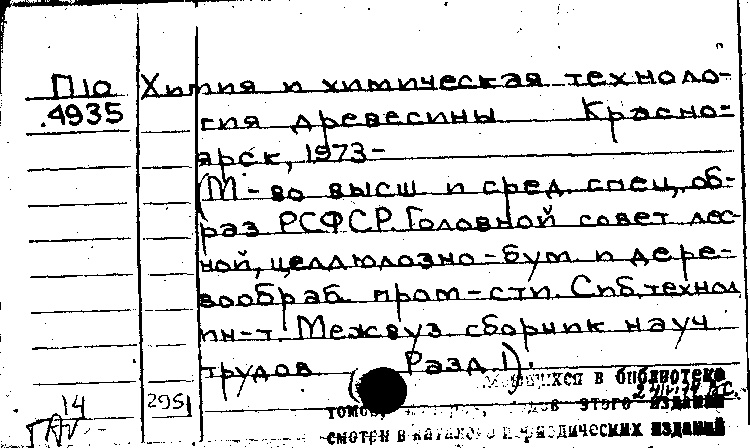 П10 Химия и химическая техноло-
.4935 гия древесины Красно-
ярск, 1973-
(М-во высш и сред. спец. об-
раз РСФСР. Головной совет лес-
ной, целлюлозно-бум и дере-
вообраб. пром-сти. Сиб. технол
ин-т. Межвуз сборник науч
трудов Разд. 1).
в библиотеке
14 295
этого издания
смотри в каталоге периодических изданий